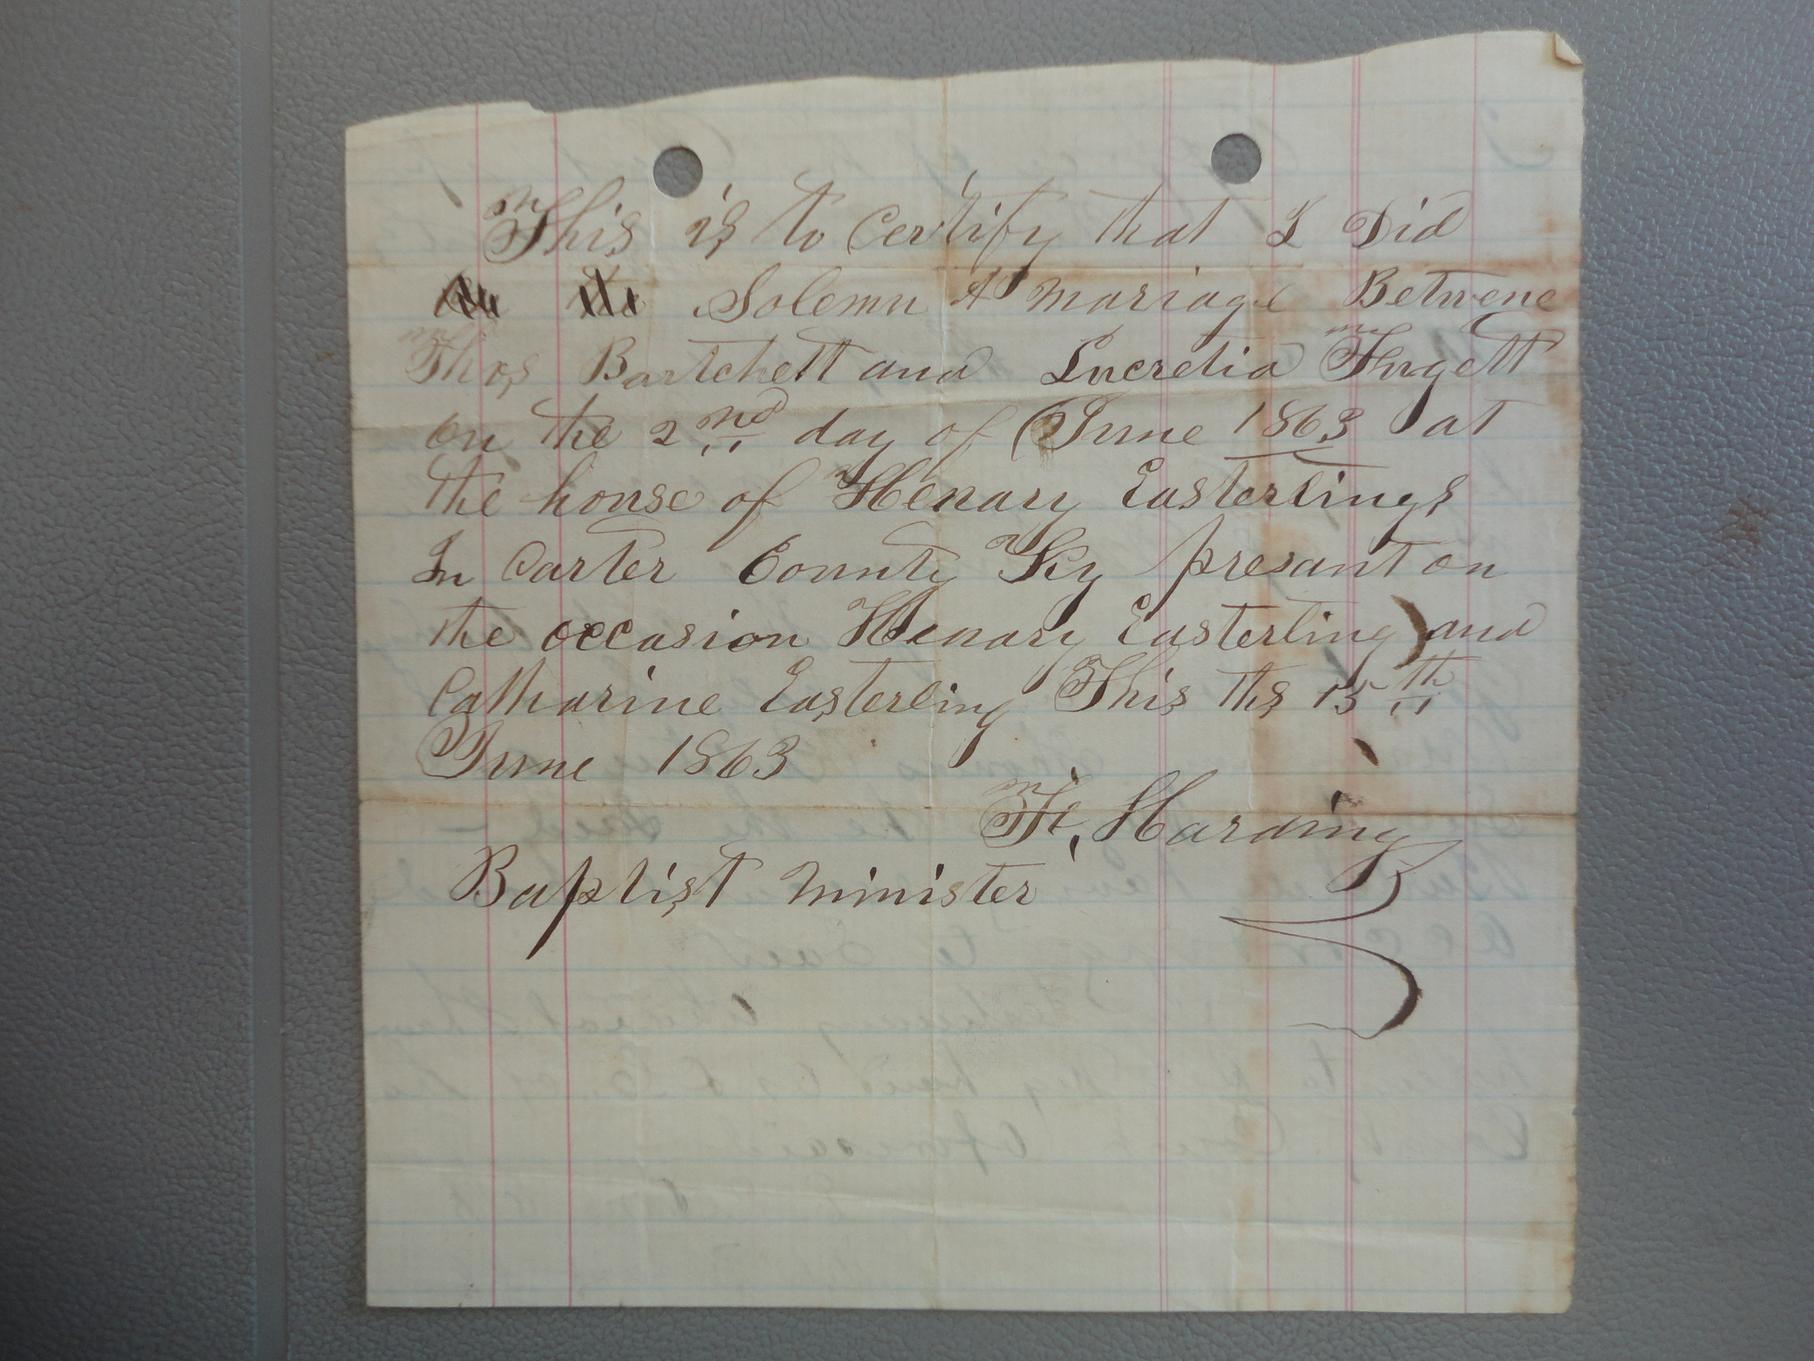 This is to Certify that I Did
Solemn A mariage Betwene
Thos Bartchett and Lucretia Fugett
on the 2nd day of June 1863 at
the house of Henary Easterlings
In Carter County Ky presant on
the occasion Henary Easterling and
Catharine Easterling This ths 15th
June 1863
Harding
Baptist minister